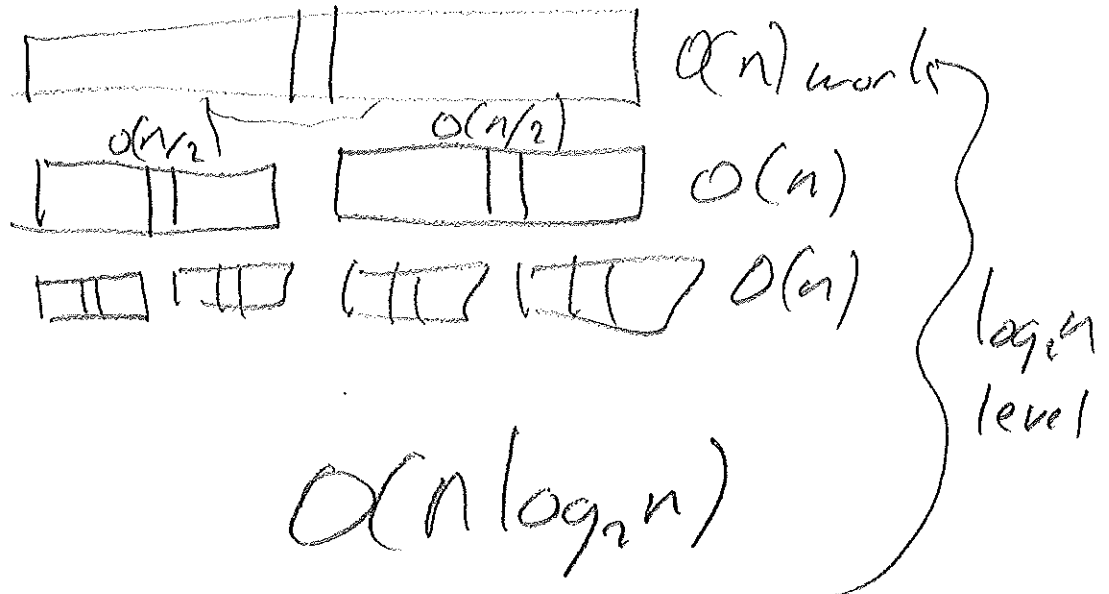 O(n) work
O(n/2) O(n/2)
O(n)
O(n)
log₂n
level
O(n log₂n)